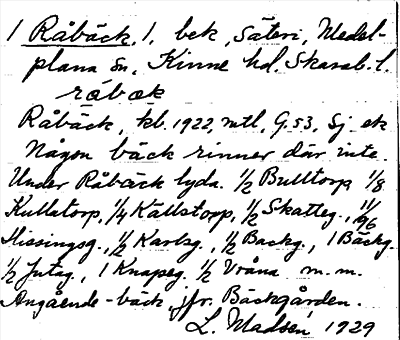 1 Råbäck, 1, bek, säteri, Medel-
plana sn, Kinne hd, Skarab. l.
råbæk
Råbäck, kb. 1922, mtl, G. 53, Sj. ek
Någon bäck rinner där inte.
Under Råbäck lyda. 1/2 Bulltorp, 1/8
Kullatorp, 1/4 Källstorp, 1/2 Skatteg., 11/96
Hissingsg., 1/2 Karlsg., 1/2 Backg., 1 Bäckg.
1/2 Jutag., 1 Knapeg. 1/2 Vråna m.m.
Angående -bäck, jfr. Bäckgården.
L. Madsén 1929